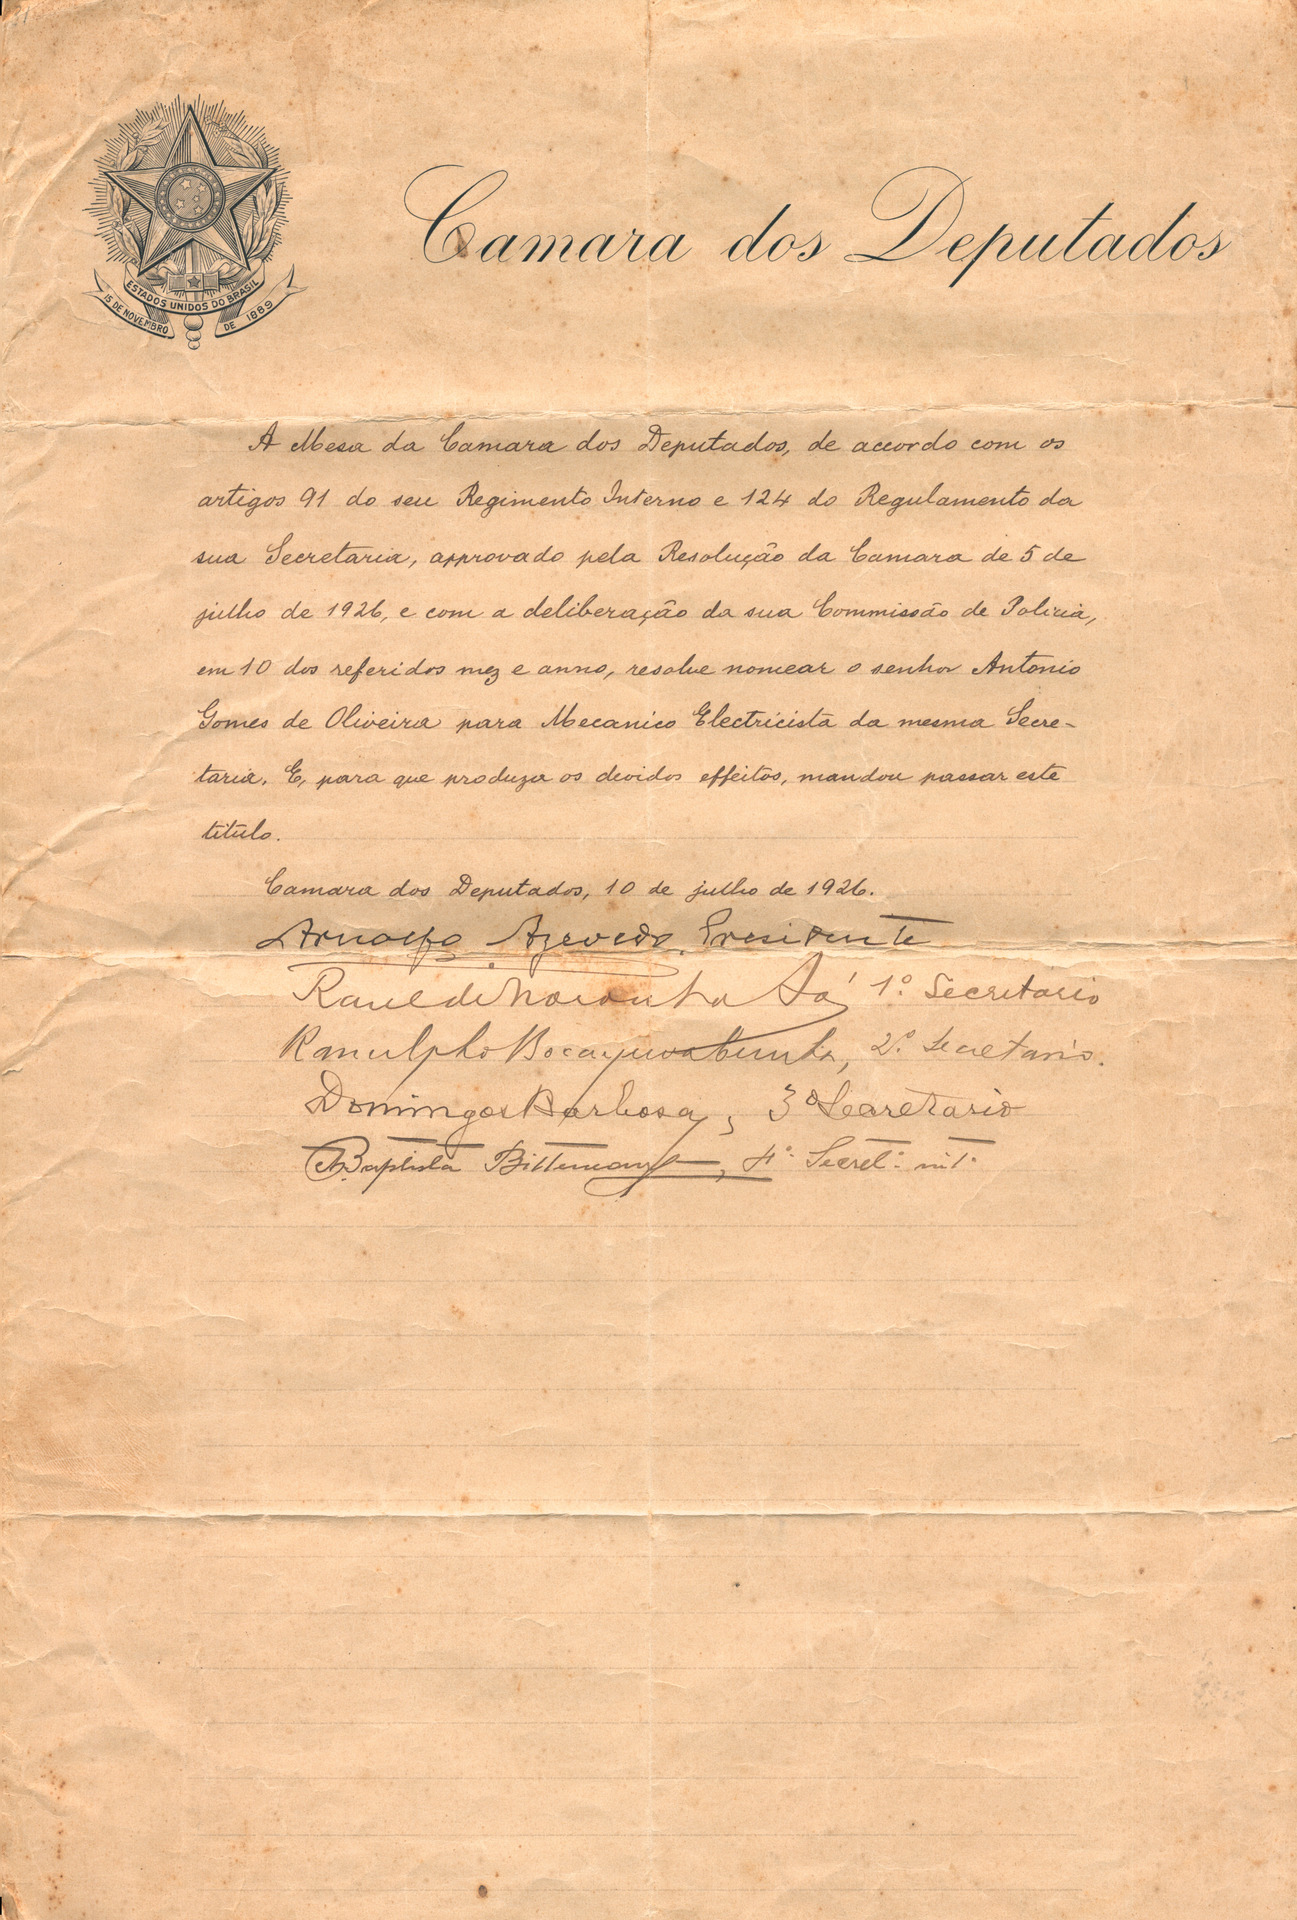 ESTADOS UNIDOS DO BRASIL
15 DE NOVEMBRO DE 1889
Camara dos Deputados
A Mesa da Camara dos Deputados, de accordo com os
artigos 91 do seu Regimento Interno e 124 do Regulamento da
sua Secretaria, approvado pela Resolução da Camara de 5 de
julho de 1926, e com a deliberação da sua Commissão de Policia,
em 10 dos referidos mez e anno, resolve nomear o senhor Antonio
Gomes de Oliveira para Mecanico Electricista da mesma Secre-
taria. E, para que produza os devidos effeitos, mandou passar este
titulo.
Camara dos Deputados, 10 de julho de 1926.
Arnolfo Azevedo, Presidente
Raul de Noronha Sá 1º Secretario
Ranulpho Bocayuva Cunha, 2º Secretario.
Domingos Barbosa, 3º Secretario
Baptista Bittencourt, 4º Secretº intº